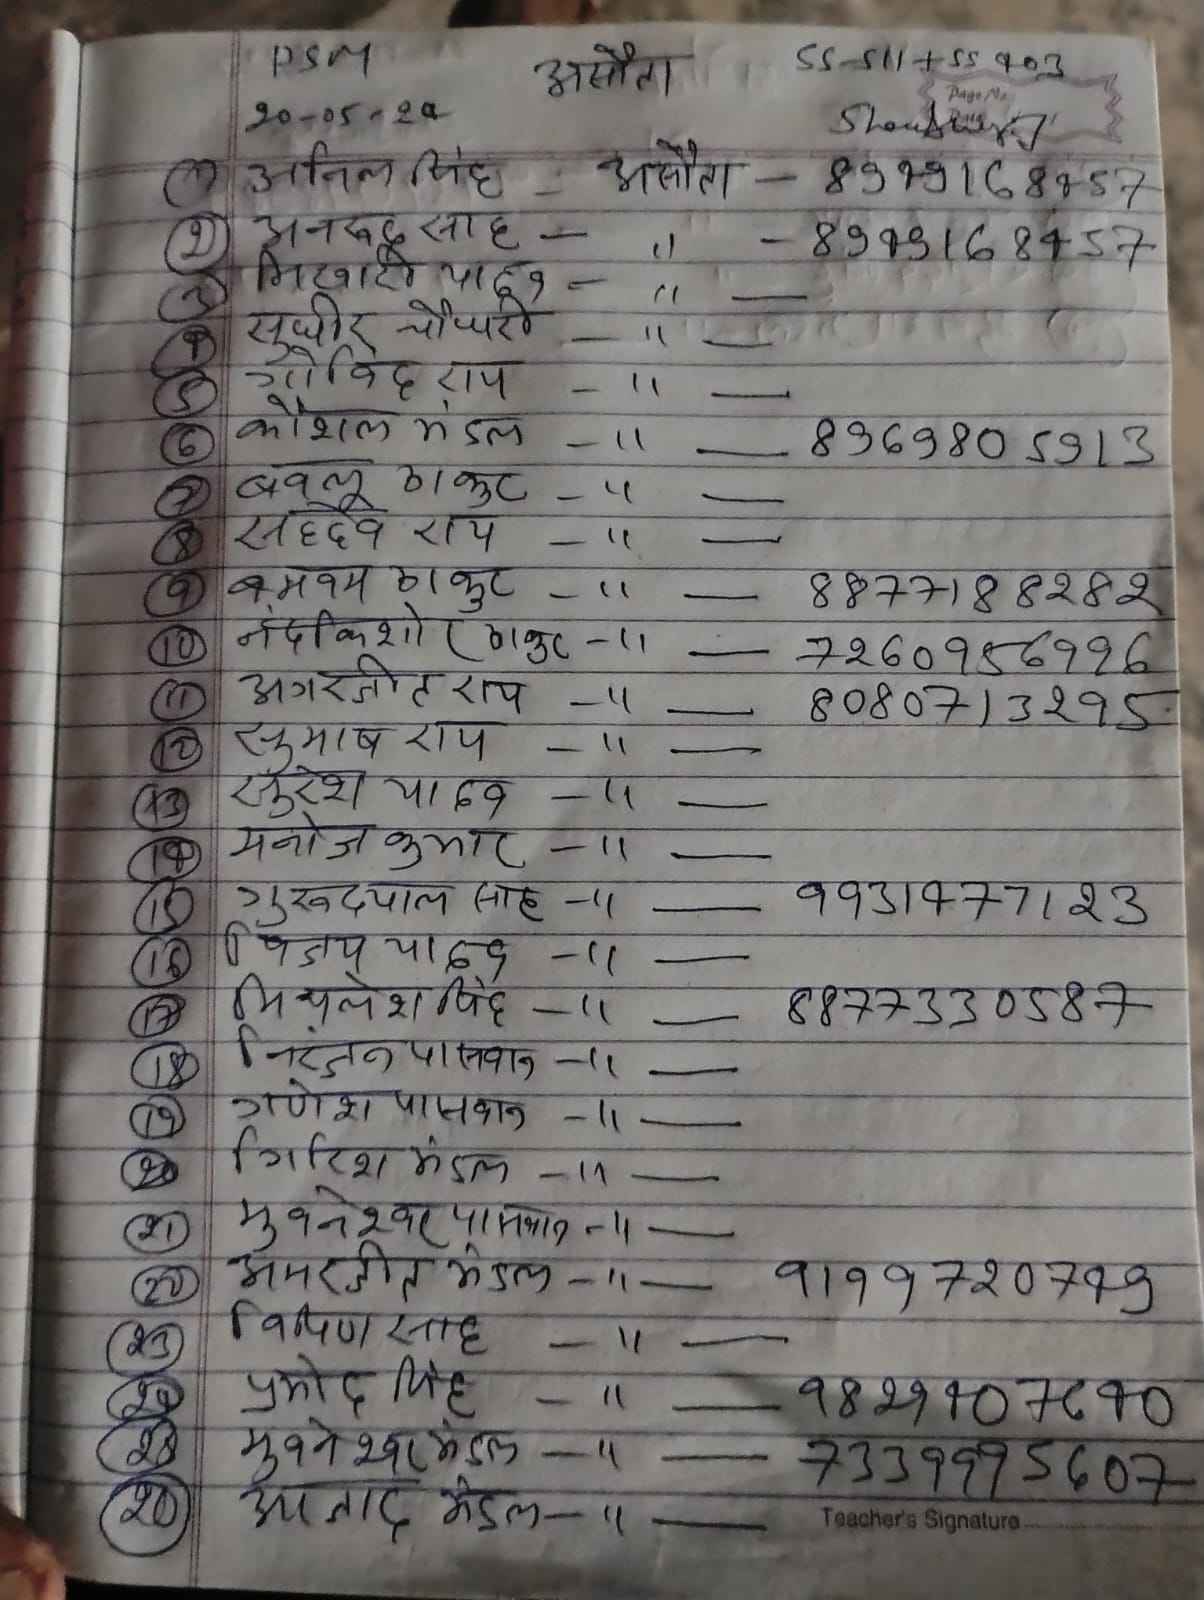 PSM असौता SS-511+SS903
Page No.
20-05-24
① अनिल सिंह - असौता -
② अनरूद्ध साह - " -
③ भिखारी यादव - " —
④ सुधीर चौधरी - " —
⑤ गोविंद राय - " —
⑥ कौशल मंडल - " — 8969805913
⑦ बबलू ठाकुर - " —
⑧ सहदेव राय - " —
⑨ ठाकुर - " — 8877188282
⑩ नंदकिशोर ठाकुर - " —
⑪ अमरजीत राय - " — 8080713295
⑫ सुभाष राय - " —
⑬ सुरेश यादव - " —
⑭ मनोज कुमार - " —
⑮ गुरूदयाल साह - " — 9931477123
⑯ विजय यादव - " —
⑰ मिथलेश सिंह - " — 8877330587
⑱ निरंजन पासवान - " —
⑲ गणेश पासवान - " —
⑳ गिरिश मंडल - " —
㉑ भुवनेश्वर पासवान - " —
㉒ अमरजीत मंडल - " — 9199720749
㉓ विपिण साह - " —
㉔ प्रमोद सिंह - " —
㉕ भुवनेश्वर मंडल - " —
मंडल - " —
Teacher's Signature